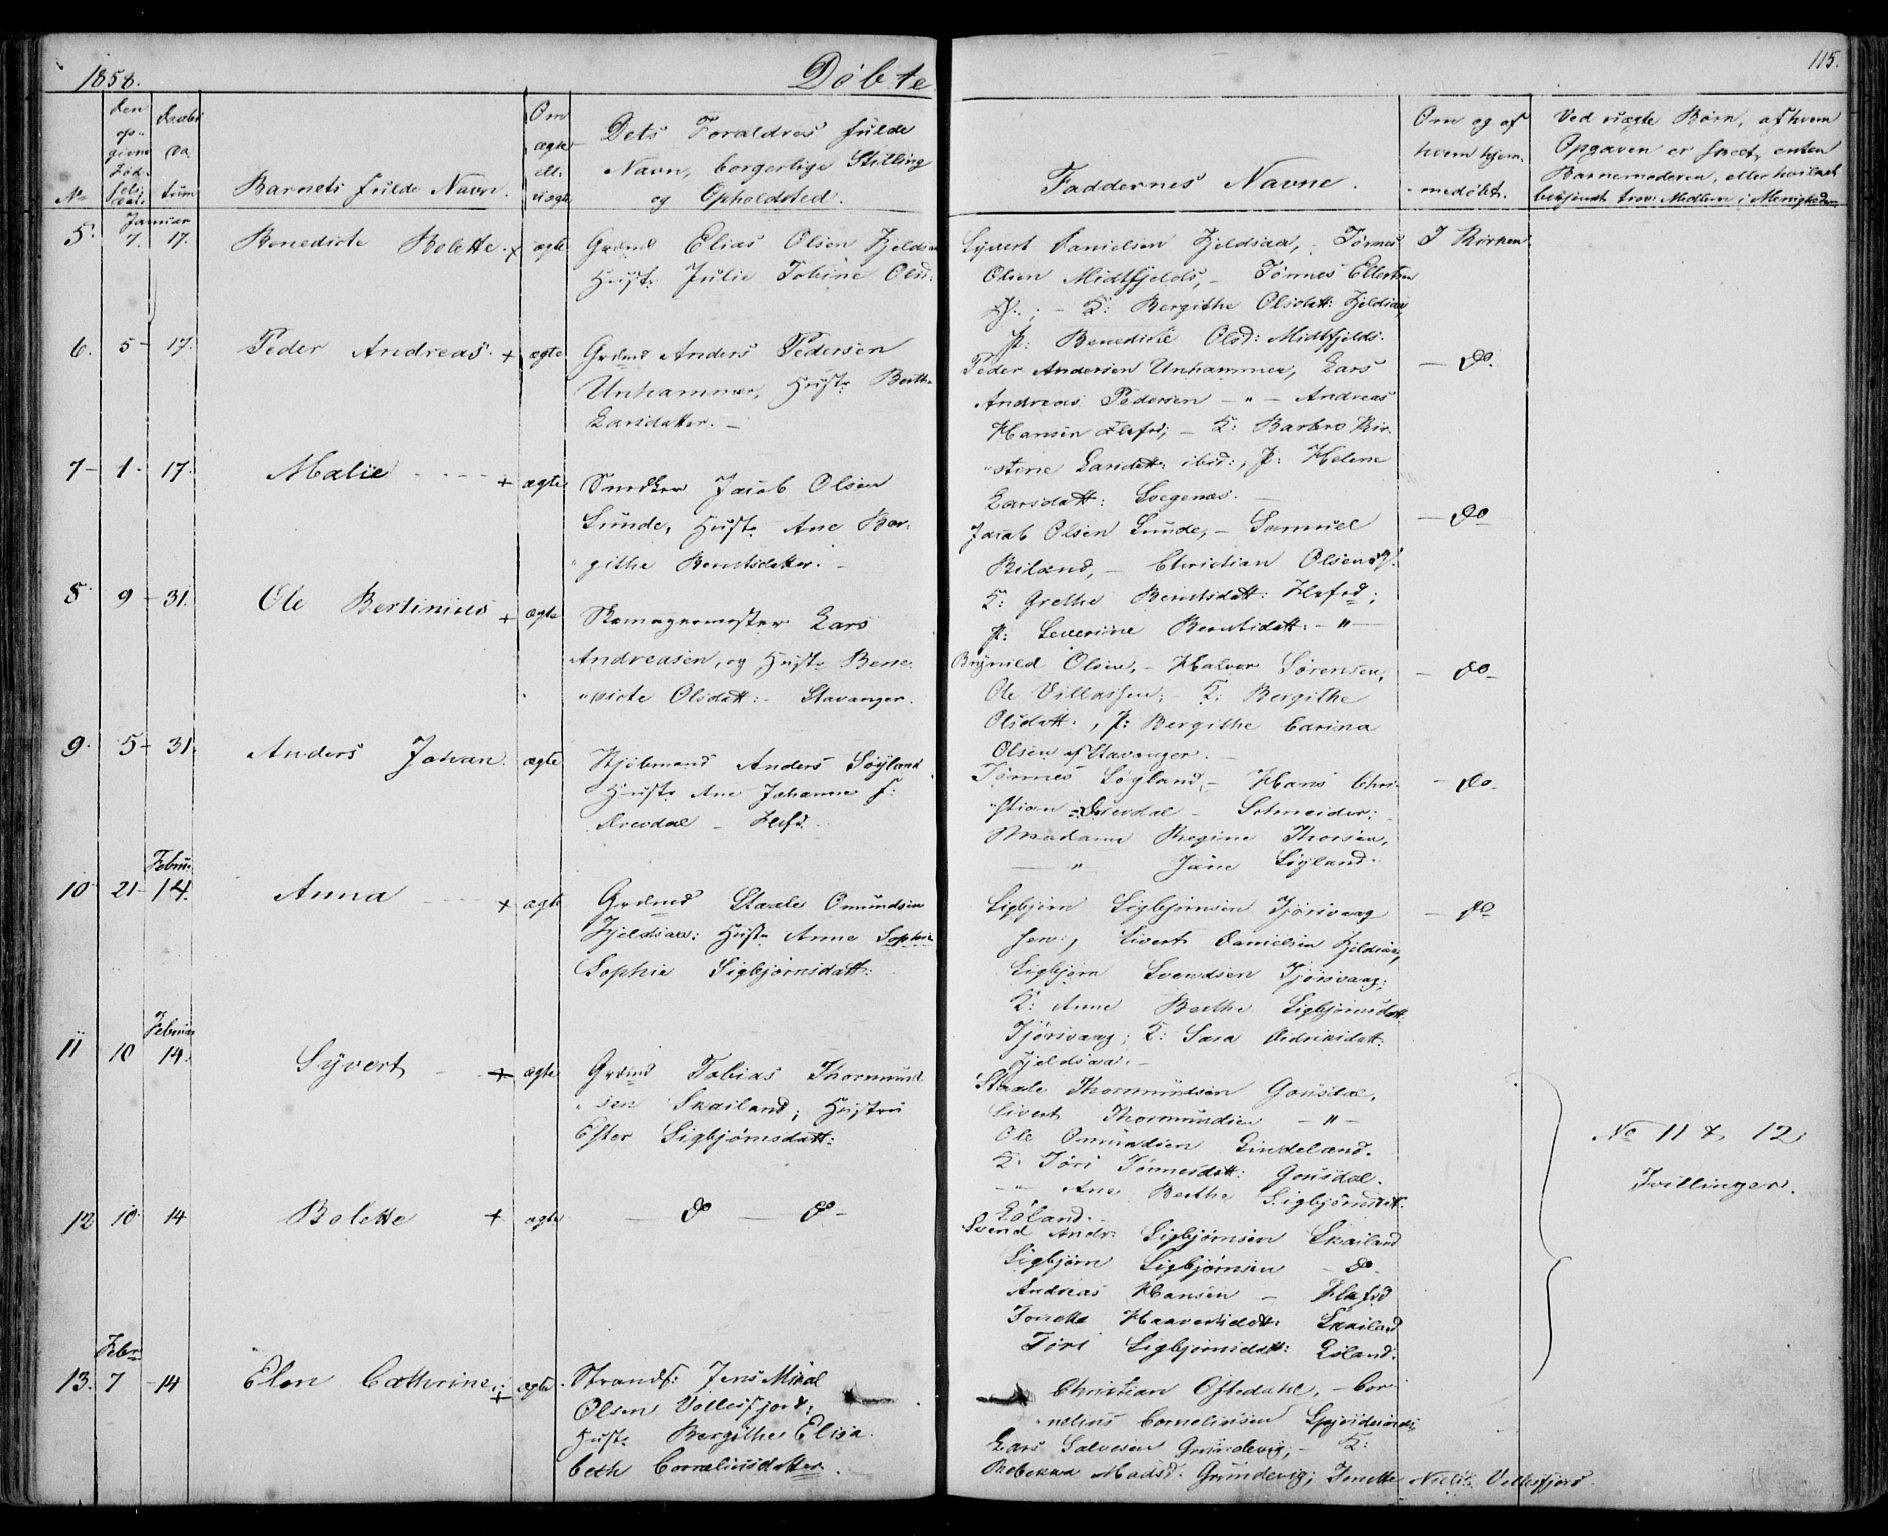 1858.
Döbte
115.
No
Den op-givne Fød-sels Dat.
Daabs Da-tum
Barnets fulde Navn.
Om ægte ell. uægte
Dets Forældres fulde
Navn, borgerlige Stilling
og Opholdsted.
Faddernes Navne.
Om og af
hvem hjem-
medøbt.
Ved uægte Børn, af hvem
Opgaven er skeet, enten
Barnemoderen, eller hvilket
bekjendt trov: Medlem i Menigheden
Januar
5. 7. 17. Benedicte Bolette. + ægte Grdmd Elias Olsen Fjeldsaa
Hust: Julie Tobine Olsd:
Syvert Danielsen Fjeldsaa, Tönnes
Olsen Midtfjelds, - Tönnes Ellertsen
K: Bergithe Olsdatt: Fjeldsaa
P: Benedicte Olsd: Midtfjelds.
I Kirken
6. 5 - 17. Peder Andreas. + ægte Grdmd Anders Pedersen
Unhammer, Hust: Berthe
Larsdatter. -
Peder Andersen Unhammer, Lars
Andreas Pedersen - " - Andreas
Hansen Flefd; - K: Barbro Kir-
"stine Larsdatt: ibid:, P: Helene
Larsdatt: Svegenæs.
- Do.
7 - 1 - 17. Malie + ægte Snedker Jacob Olsen
Lunde, Hust: Ane Ber-
"githe Berntsdatter. -
Jacob Olsen Lunde, - Samuel
Birkeland, - Christian Olsen
K: Grethe Berntsdatt: Flefd;
P: Severine Berntsdatt: - " -
- Do
8. 9 - 31. Ole Bertinius + ægte Skomagermester Lars
Andreasen, og Hust: Bene-
"dicte Olsdatt: - Stavanger.
Brynild Olsen, - Halvor Sörensen,
Ole Villassen; - K: Bergithe
Olsdatt., P: Bergithe Carina
Olsen af Stavanger.
- Do -
9. 5 - 31. Anders Johan. ægte Kjøbmand Anders Söyland
Hust: Ane Johanne f:
Drevdal - Flefd.
Tönnes Söyland, - Hans Chri-
"stian Drevdal - Schneider;
Madame Regine Thorsen,
" Jane Söyland.
- Do -
Februar
10 21 - 14. Anna + ægte Grdmd Staale Omundsen
Fjeldsaa: Hust: Anne Sophie
Sophie Sigbjörnsdatt:
Sigbjörn Sigbjörnsen Tjörsvaag
sen:, Sivert Danielsen Fjeldsaa,
Sigbjörn Svendsen Tjörsvaag;
K: Anne Berthe Sigbjörnsdatt:
Tjörsvaag; K: Sara Fredriksdatt:
Fjeldsaa. -
- Do
Februar
11 10 14. Syvert + ægte Grdmd Tobias Thormund
"sen Skailand; Hustru
Ester Sigbjörnsdatt:
Staale Thormundsen Gousdal,
Sivert Thormundsen - " -
Ole Omundsen Lindeland.
K: Jöri Tönnesdatt: Gousdal.
- " - Ane Berthe Sigbjörnsdatt:
Eöland. -
No 11 & 12;
Tvillinger.
12 10. 14 Bolette + ægte - Do - Do -
Svend Andr: Sigbjörnsen Skailand
Sigbjörn Sigbjörnsen - Do.
Andreas Hansen - Flefd
Jonette Haaversdatt: Skailand
Jöri Sigbjörnsdatt: Eöland.
Febr
13. 7 - 14 Elen Cathrine. + ægte. Strandf: Jens Mikal
Olsen Vollesfjord;
Hust: Bergithe Elisa-
beth Corneliusdatter.
Christian Oftedahl, - Cor-
"nelius Corneliussen
Lars Salvesen Grundevig; - K:
Rebekka Madsd: Grundevig; Jonette Niels: Vollesfjord.